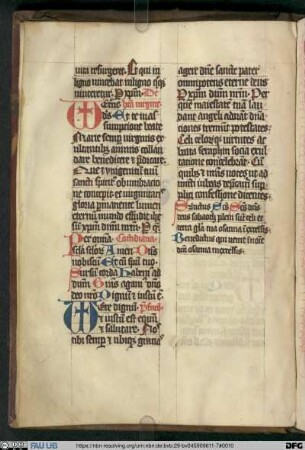 unti resurgeret. Et qui in
ligno uincebat in ligno quoq
uinceretur. P xpm. De
Eterne
Et te in as
sumptione beate
Marie semp uirginis ex
ultantibus animis collau
dare benedicere et predicare.
Que et unigenitum tuum
sancti spiritus obumbracione
concepit et uirginitatis
gloria permanente lumen
eternum mundo effudit ihe
sum xpm dnm nrm. P q
Per omnia Cottidiana
scla sclor. Amen. Dns
uobiscum. Et cum spu tuo.
Sursum corda. Habem ad
dnm. Gras agam dno
deo nro. Dignum et iustum e.
Vere dignum
et iustum est equum
et salutare. Nos
tibi semper et ubique gratias
agere dne sancte pater
omnipotens eterne deus
P xpm dnm nrm. Per
quem maiestatem tuam lau
dant angeli adorant dnati
ones tremunt potestates.
Celi celorumq uirtutes ac
beata seraphin socia exul
tatione concelebrant. Cum
quibus et nras uoces ut ad
mitti iubeas deprecamur sup
plici confessione dicentes.
Sanctus Scs Scs dns
deus sabaoth pleni sunt celi et
terra gla tua osanna in excelsis.
Benedictus qui uenit in nomine
dni osanna in excelsis.
https://nbn-resolving.org/urn:nbn:de:bvb:29-bv045909611-7#0010
FAU UB
DFG